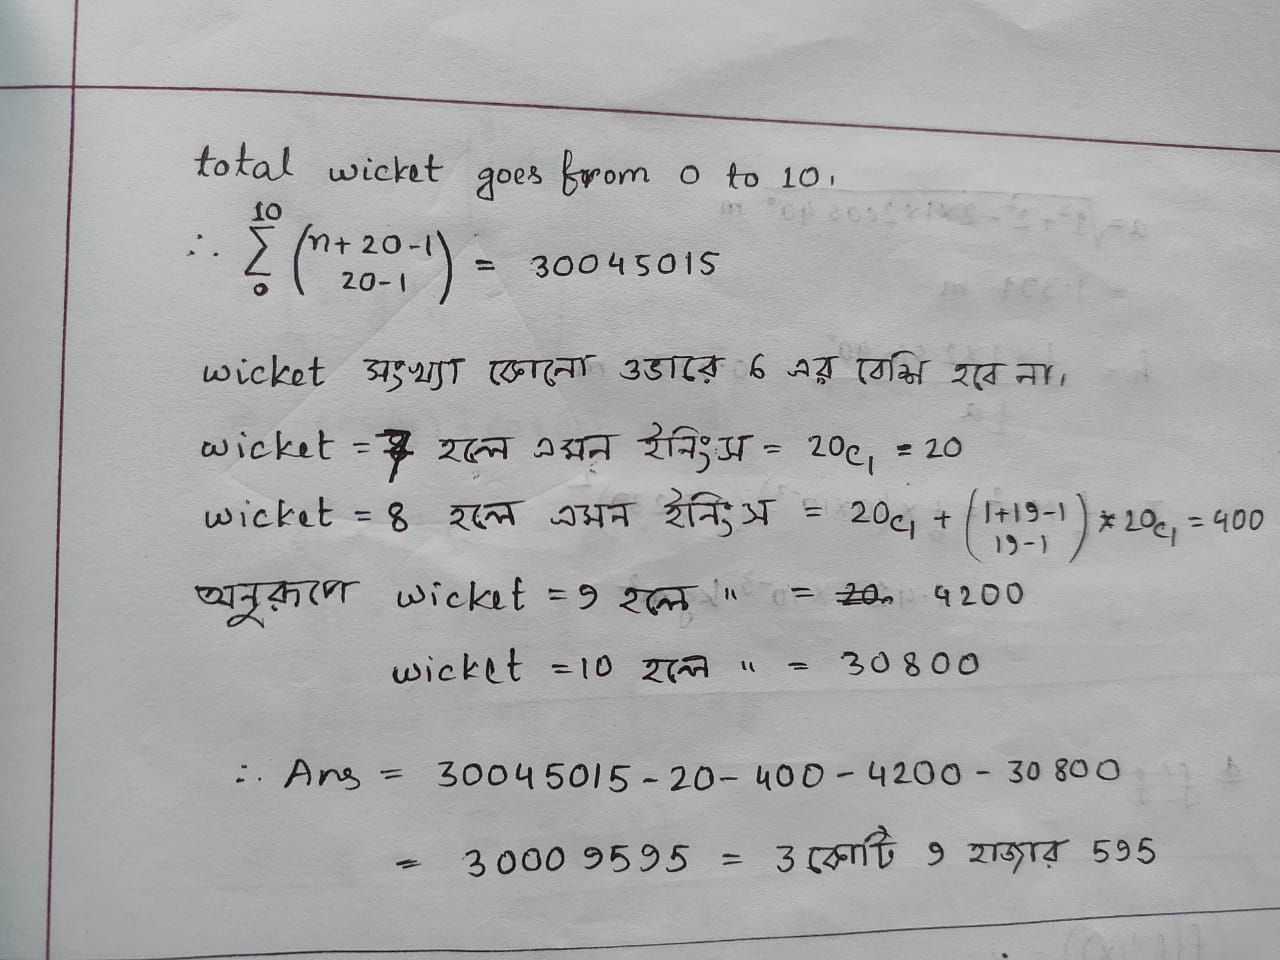 total wicket goes from 0 to 10,
10
∴ ∑ (n+20-1
20-1) = 30045015
0
wicket সংখ্যা কোনো ওভারে 6 এর বেশি হবে না,
wicket = 7 হলে এমন ইনিংস = 20c₁ = 20
wicket = 8 হলে এমন ইনিংস = 20c₁ + (1+19-1
19-1) * 20c₁ = 400
অনুরূপে wicket = 9 হলে " = 4200
wicket = 10 হলে " = 30800
∴ Ans = 30045015 - 20 - 400 - 4200 - 30800
= 30009595 = 3 কোটি 9 হাজার 595